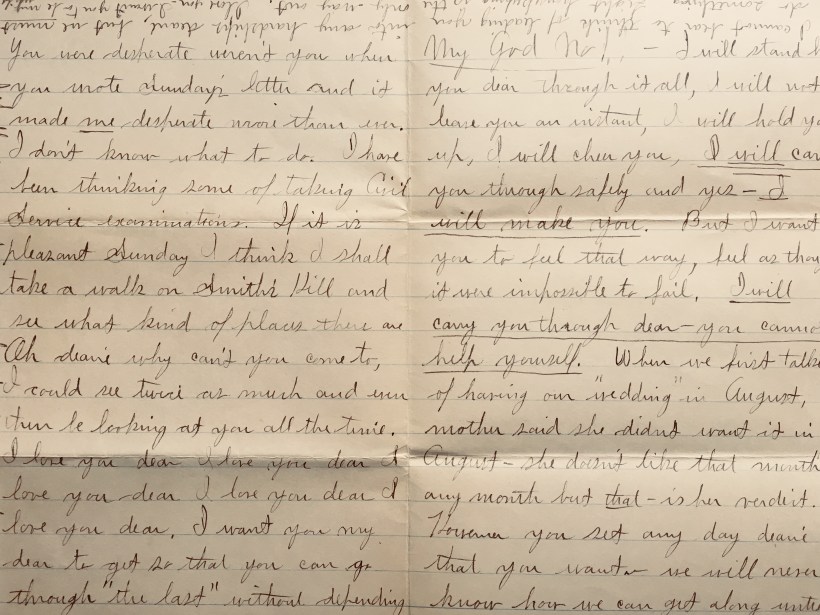 I cannot bear to think of leading you
into any hardships dear, but we must
do something
only way out I love you I want you to be
You were desperate weren't you when
you wrote Sunday's letter and it
made me desperate more than ever.
I don't know what to do. I have
been thinking some of taking Civil
Service examinations. If it is
pleasant Sunday I think I shall
take a walk on Smith's Hill and
see what kind of places there are
Oh dearie why can't you come to,
I could see twice as much and even
then be looking at you all the time.
I love you dear I love you dear I
love you dear I love you dear I
love you dear. I want you my
dear to get so that you can go
through "the last" without depending
My God No!, - I will stand
you dear through it all, I will not
leave you an instant, I will hold
up, I will cheer you, I will
you through safely and yes - I
will make you. But I want
you to feel that way, feel as
it were impossible to fail. I will
carry you through dear - you
help yourself. When we first
of having our "wedding" in August,
mother said she didn't want it in
August - she doesn't like that month
any month but that - is her verdict.
However you set any day dearie
that you want - we will never
know how we can get along